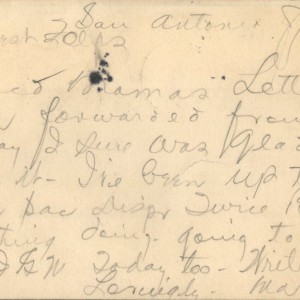 San Antonio
Folks
Mamas Lett
forwarded from
I sure was glad
it - I've been up t
Pac Dispr Twice
thing doing. going to
I & G N Today too - Write
Lovingly - Ma